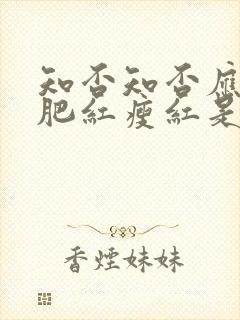 知否知否應
肥紅瘦紅是
香煙妹妹